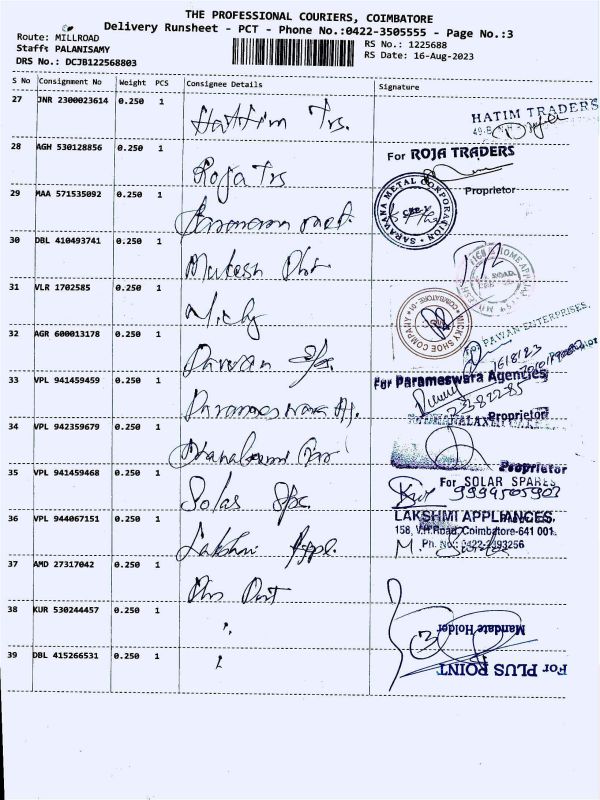 THE PROFESSIONAL COURIERS, COIMBATORE
Delivery Runsheet - PCT - Phone No.:0422-3505555 - Page No.:3
Route: MILLROAD
Staff: PALANISAMY
DRS No.: DCJB122568803
RS No.: 1225688
RS Date: 16-Aug-2023
S No Consignment No Weight PCS Consignee Details Signature
27 JNR 2300023614 0.250 1 Hattim Trs. HATIM TRADERS
28 AGH 530128856 0.250 1 Roja Trs For ROJA TRADERS
Proprietor
29 MAA 571535092 0.250 1 SARAWANA METAL CORPORATION
30 DBL 410493741 0.250 1 Mukesh
31 VLR 1702585 0.250 1 Micky MICKY SHOE COMPANY
32 AGR 600013178 0.250 1 Pavan PAWAN ENTERPRISES
16/8/23
33 VPL 941459459 0.250 1 Parameswara Ag. For Parameswara Agencies
Proprietor
34 VPL 942359679 0.250 1 Proprietor
35 VPL 941459468 0.250 1 Solar Spr. For SOLAR SPARES
36 VPL 944067151 0.250 1 Lakshmi Appl. LAKSHMI APPLIANCES,
158, V.H.Road, Coimbatore-641 001.
Ph. No: 0422-2393256
37 AMD 27317042 0.250 1
38 KUR 530244457 0.250 1 " Mandate Holder
39 DBL 415266531 0.250 1 For PLUS POINT